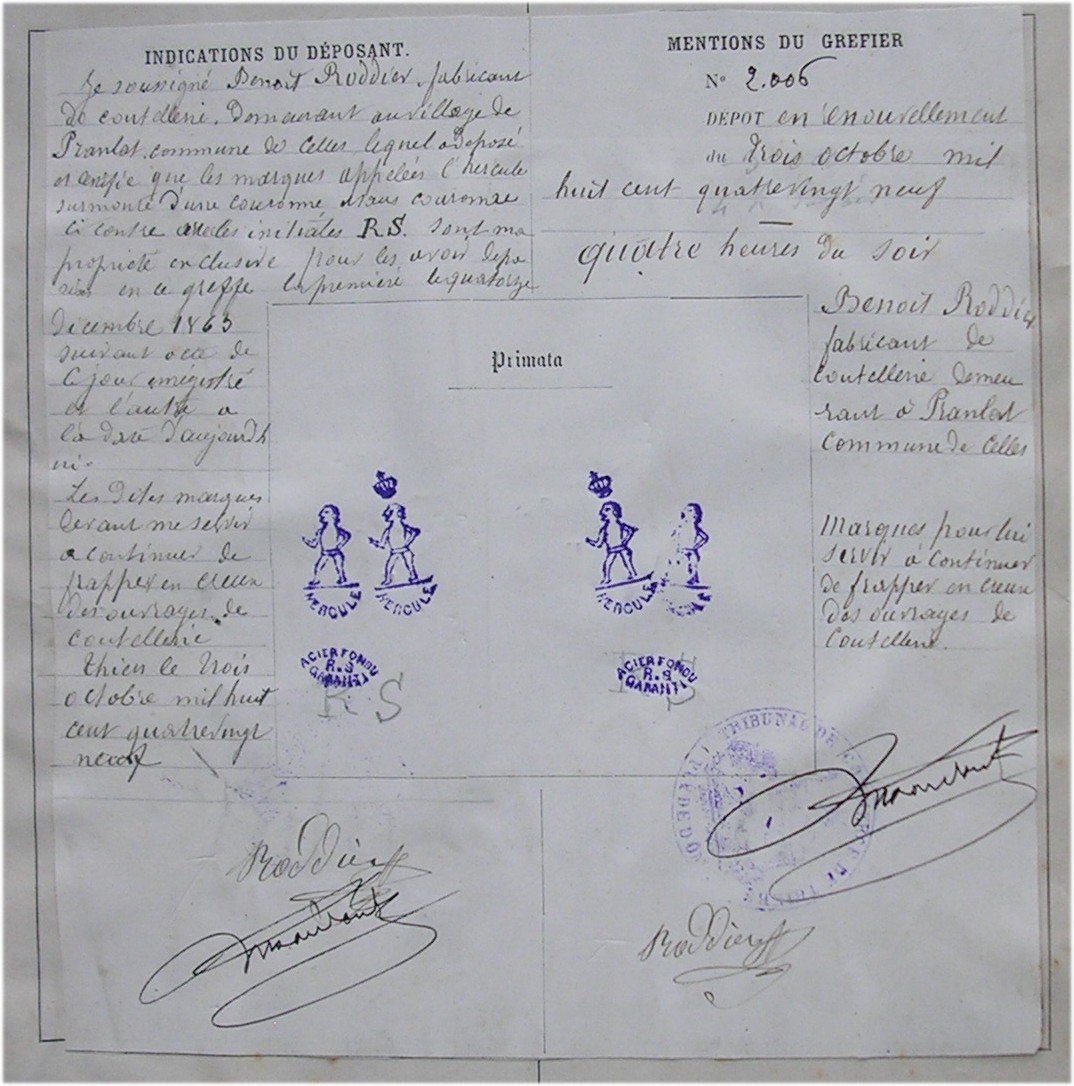 INDICATIONS DU DÉPOSANT.
Je soussigné Benoit Roddier, fabricant
de coutellerie, demeurant au village de
Pranlat, commune de Celles lequel a déposé
et certifie que les marques appelées l'hercule
surmonté d'une couronne et sans couronne
ci contre avec les initiales R.S. sont ma
propriété exclusive pour les avoir dépo
sées en ce greffe la première le quatorze
décembre 1863
suivant acte de
ce jour enrégistré
et l'autre a
la date d'aujourdh
ui.
Les dites marques
devant me servir
a continuer de
frapper en creux
des ouvrages de
coutellerie
thiers le trois
octobre mil huit
cent quatrevingt
neuf
MENTIONS DU GREFIER
N° 2.006
DÉPOT en renouvellement
du trois octobre mil
huit cent quatrevingt neuf
quatre heures du soir
Benoit Roddier
fabricant de
coutellerie demeu
rant à Pranlat
commune de Celles
marques pour lui
servir à continuer
de frapper en creux
des ouvrages de
coutellerie.
Primata
HERCULE
HERCULE
HERCULE
HERCULE
ACIER FONDU
R.S
GARANTI
R S
ACIER FONDU
R.S
GARANTI
R S
TRIBUNAL DE
PUY DE DO
Roddier
Roddier